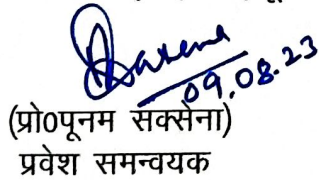 09.08.23
(प्रो0पूनम सक्सेना)
प्रवेश समन्वयक